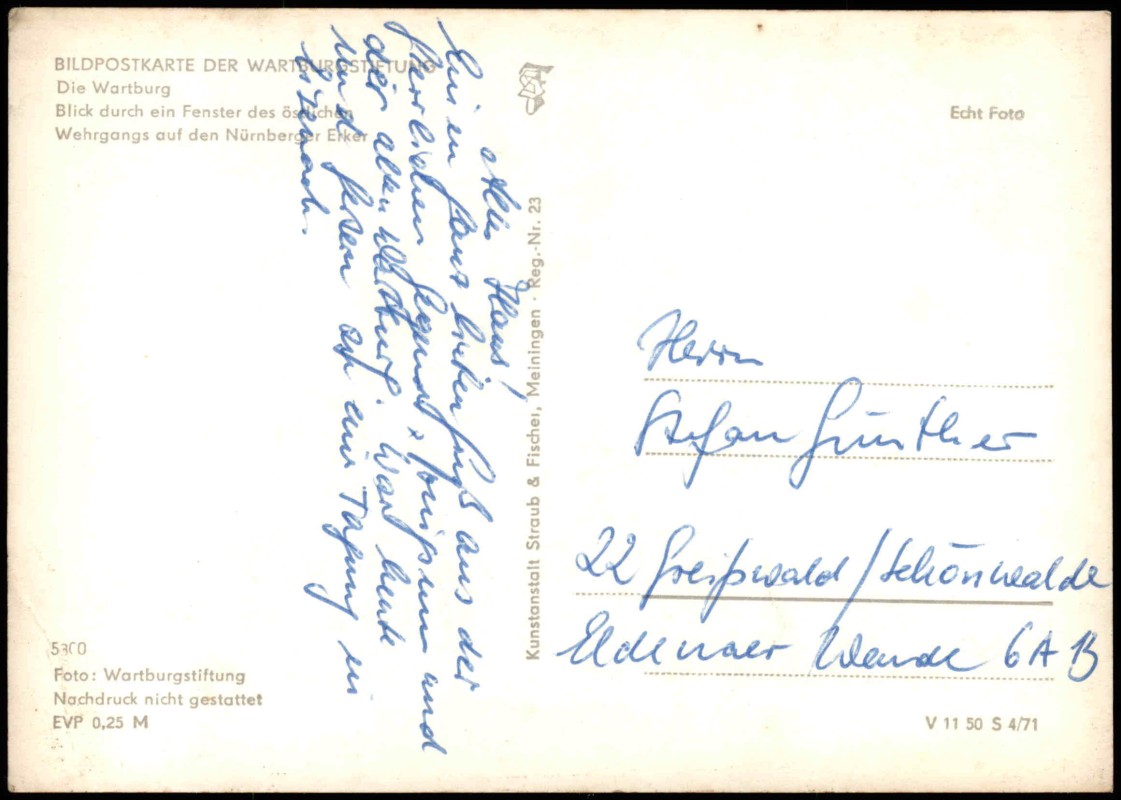 BILDPOSTKARTE DER WARTBURGSTIFTUNG
Die Wartburg
Blick durch ein Fenster des östlichen
Wehrgangs auf den Nürnberger Erker
Echt Foto
Hans!
Gruß aus der
herrlichen Gegend um und
der alten Wartburg. War heute
und gestern auf eine Tagung in
Eisenach.
Kunstanstalt Straub & Fischer, Meiningen · Reg.-Nr. 23
Herrn
Stefan Günther
22 Greifswald / Schönwalde
Eldenaer Wende 6A B
5300
Foto: Wartburgstiftung
Nachdruck nicht gestattet
EVP 0,25 M
V 11 50 S 4/71